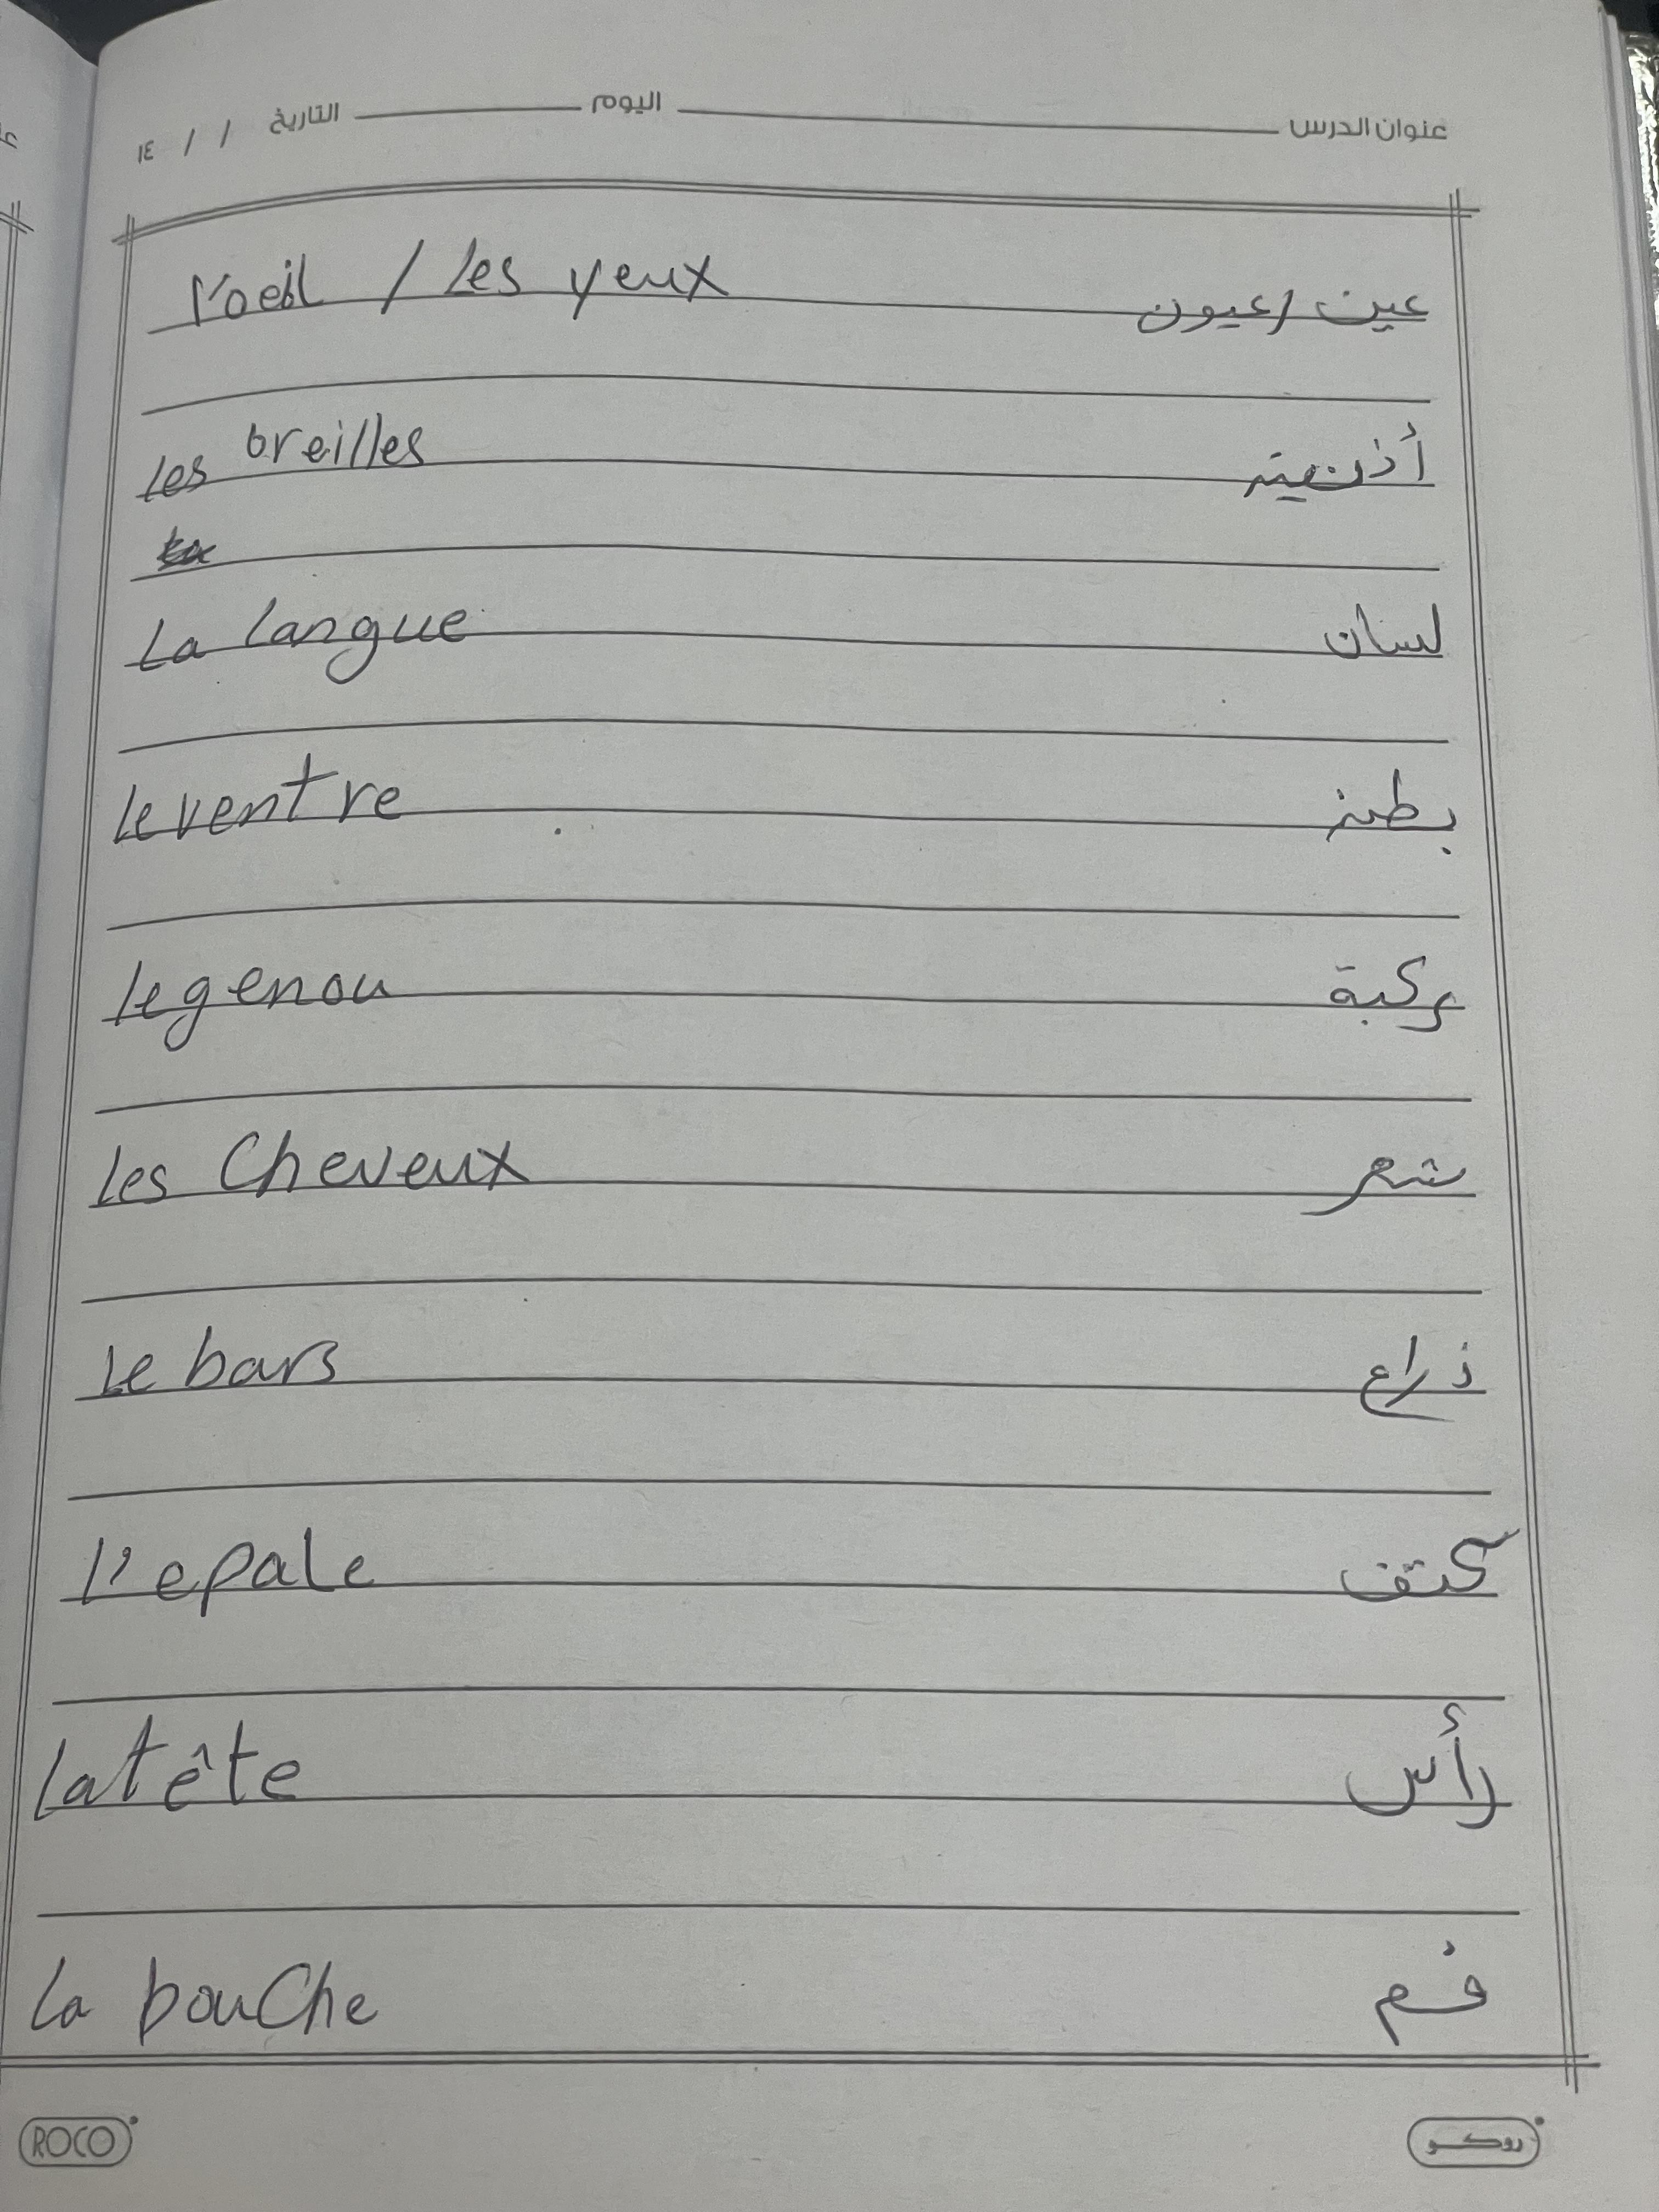 عنوان الدرس اليوم التاريخ / / ١٤
l'oeil / les yeux عين / عيون
les oreilles أذنين
La langue لسان
le ventre بطن
le genou ركبة
les Cheveux شعر
le bars ذراع
l'epale كتف
la tête رأس
La bouche فم
ROCO روكو